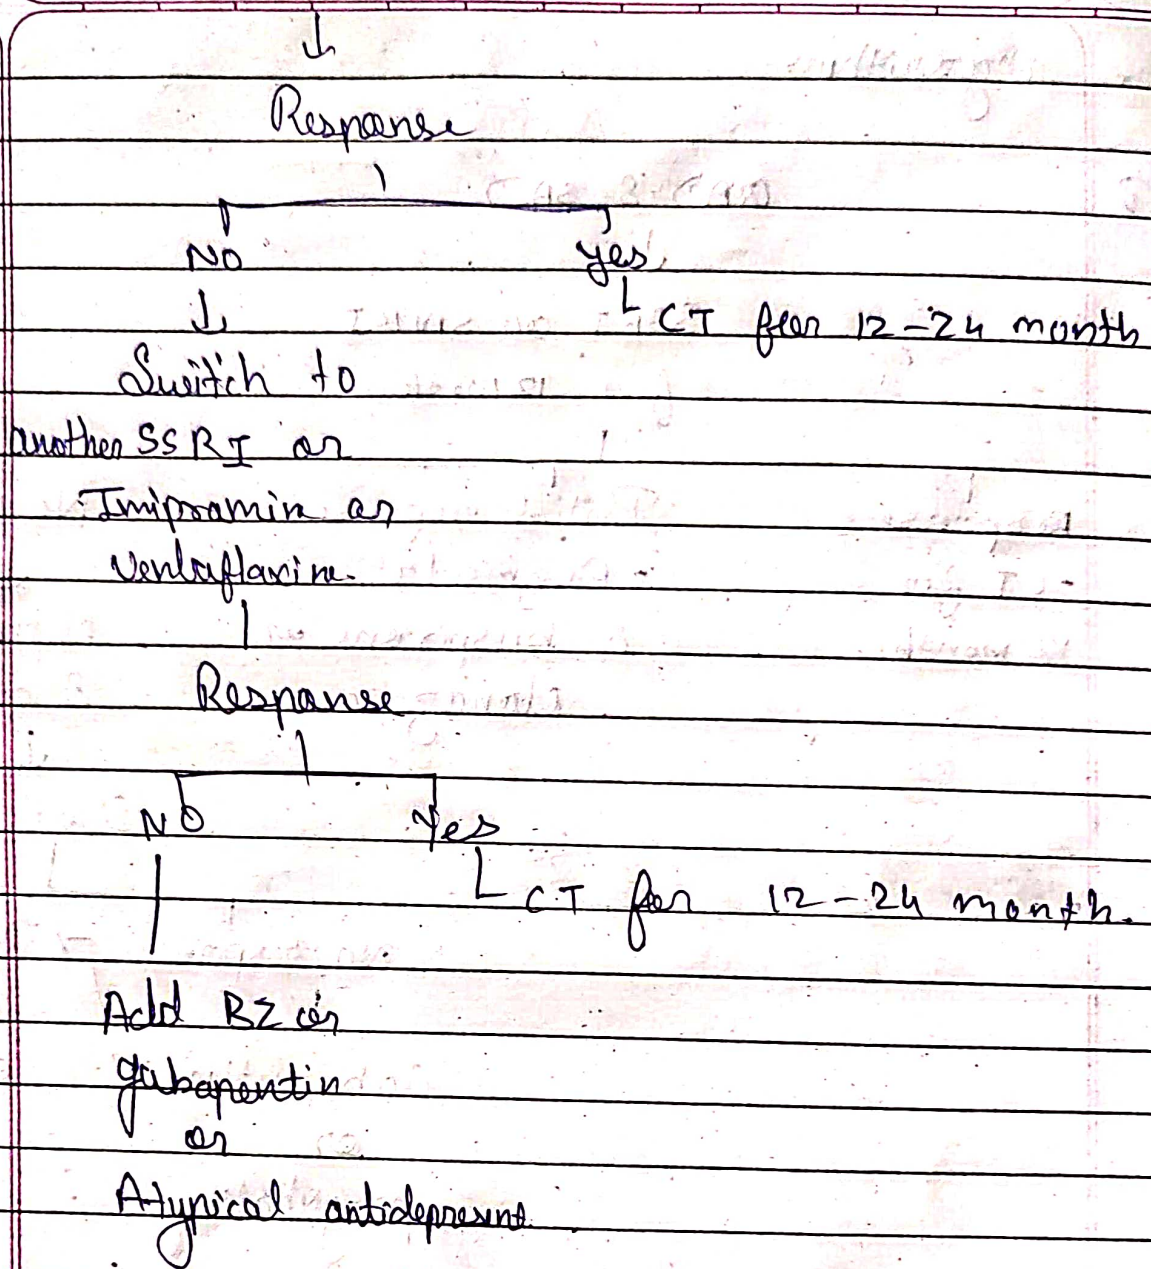 Response
NO yes
CT for 12-24 month
Switch to
another SSRI or
Imipramin or
Venlaflaxine.
Response
NO Yes
CT for 12-24 month.
Add BZ or
gabapentin
or
Atypical antidepresent